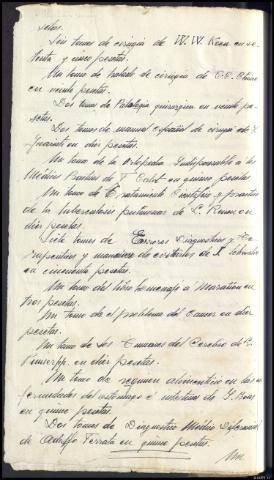 setas.
Seis tomos de cirugia de W. W. Keen en se-
tenta y cinco pesetas.
Un tomo de tratado de cirugia de
en veinte pesetas.
Dos tomos de Patologia quirurgica en veinte pe-
setas.
Dos tomos de manual español de cirugia de
en diez pesetas.
Un tomo de la Ortopedia Indispensable a los
Médicos Practicos de F. Calot en quince pesetas
Un tomo de Tratamiento Cientifico y practico
de la tuberculosis pulmonar de L. Renon en
diez pesetas.
Siete tomos de Errores Diagnosticos y Te-
rapeuticos y manera de evitarlos de J. Schwalbe
en cincuenta pesetas.
Un tomo del libro homenaje a Marañon en
tres pesetas.
Un tomo de el problema del Cancer en diez
pesetas.
Un tomo de los Tumores del Cerebro de
en diez pesetas.
Un tomo de regimen alimenticio en las en-
fermedades del estomago e intestino de G. Boas
en quince pesetas.
Dos tomos de Diagnostico Médico Diferencial
de Adolfo Ferrata en quince pesetas.
Un